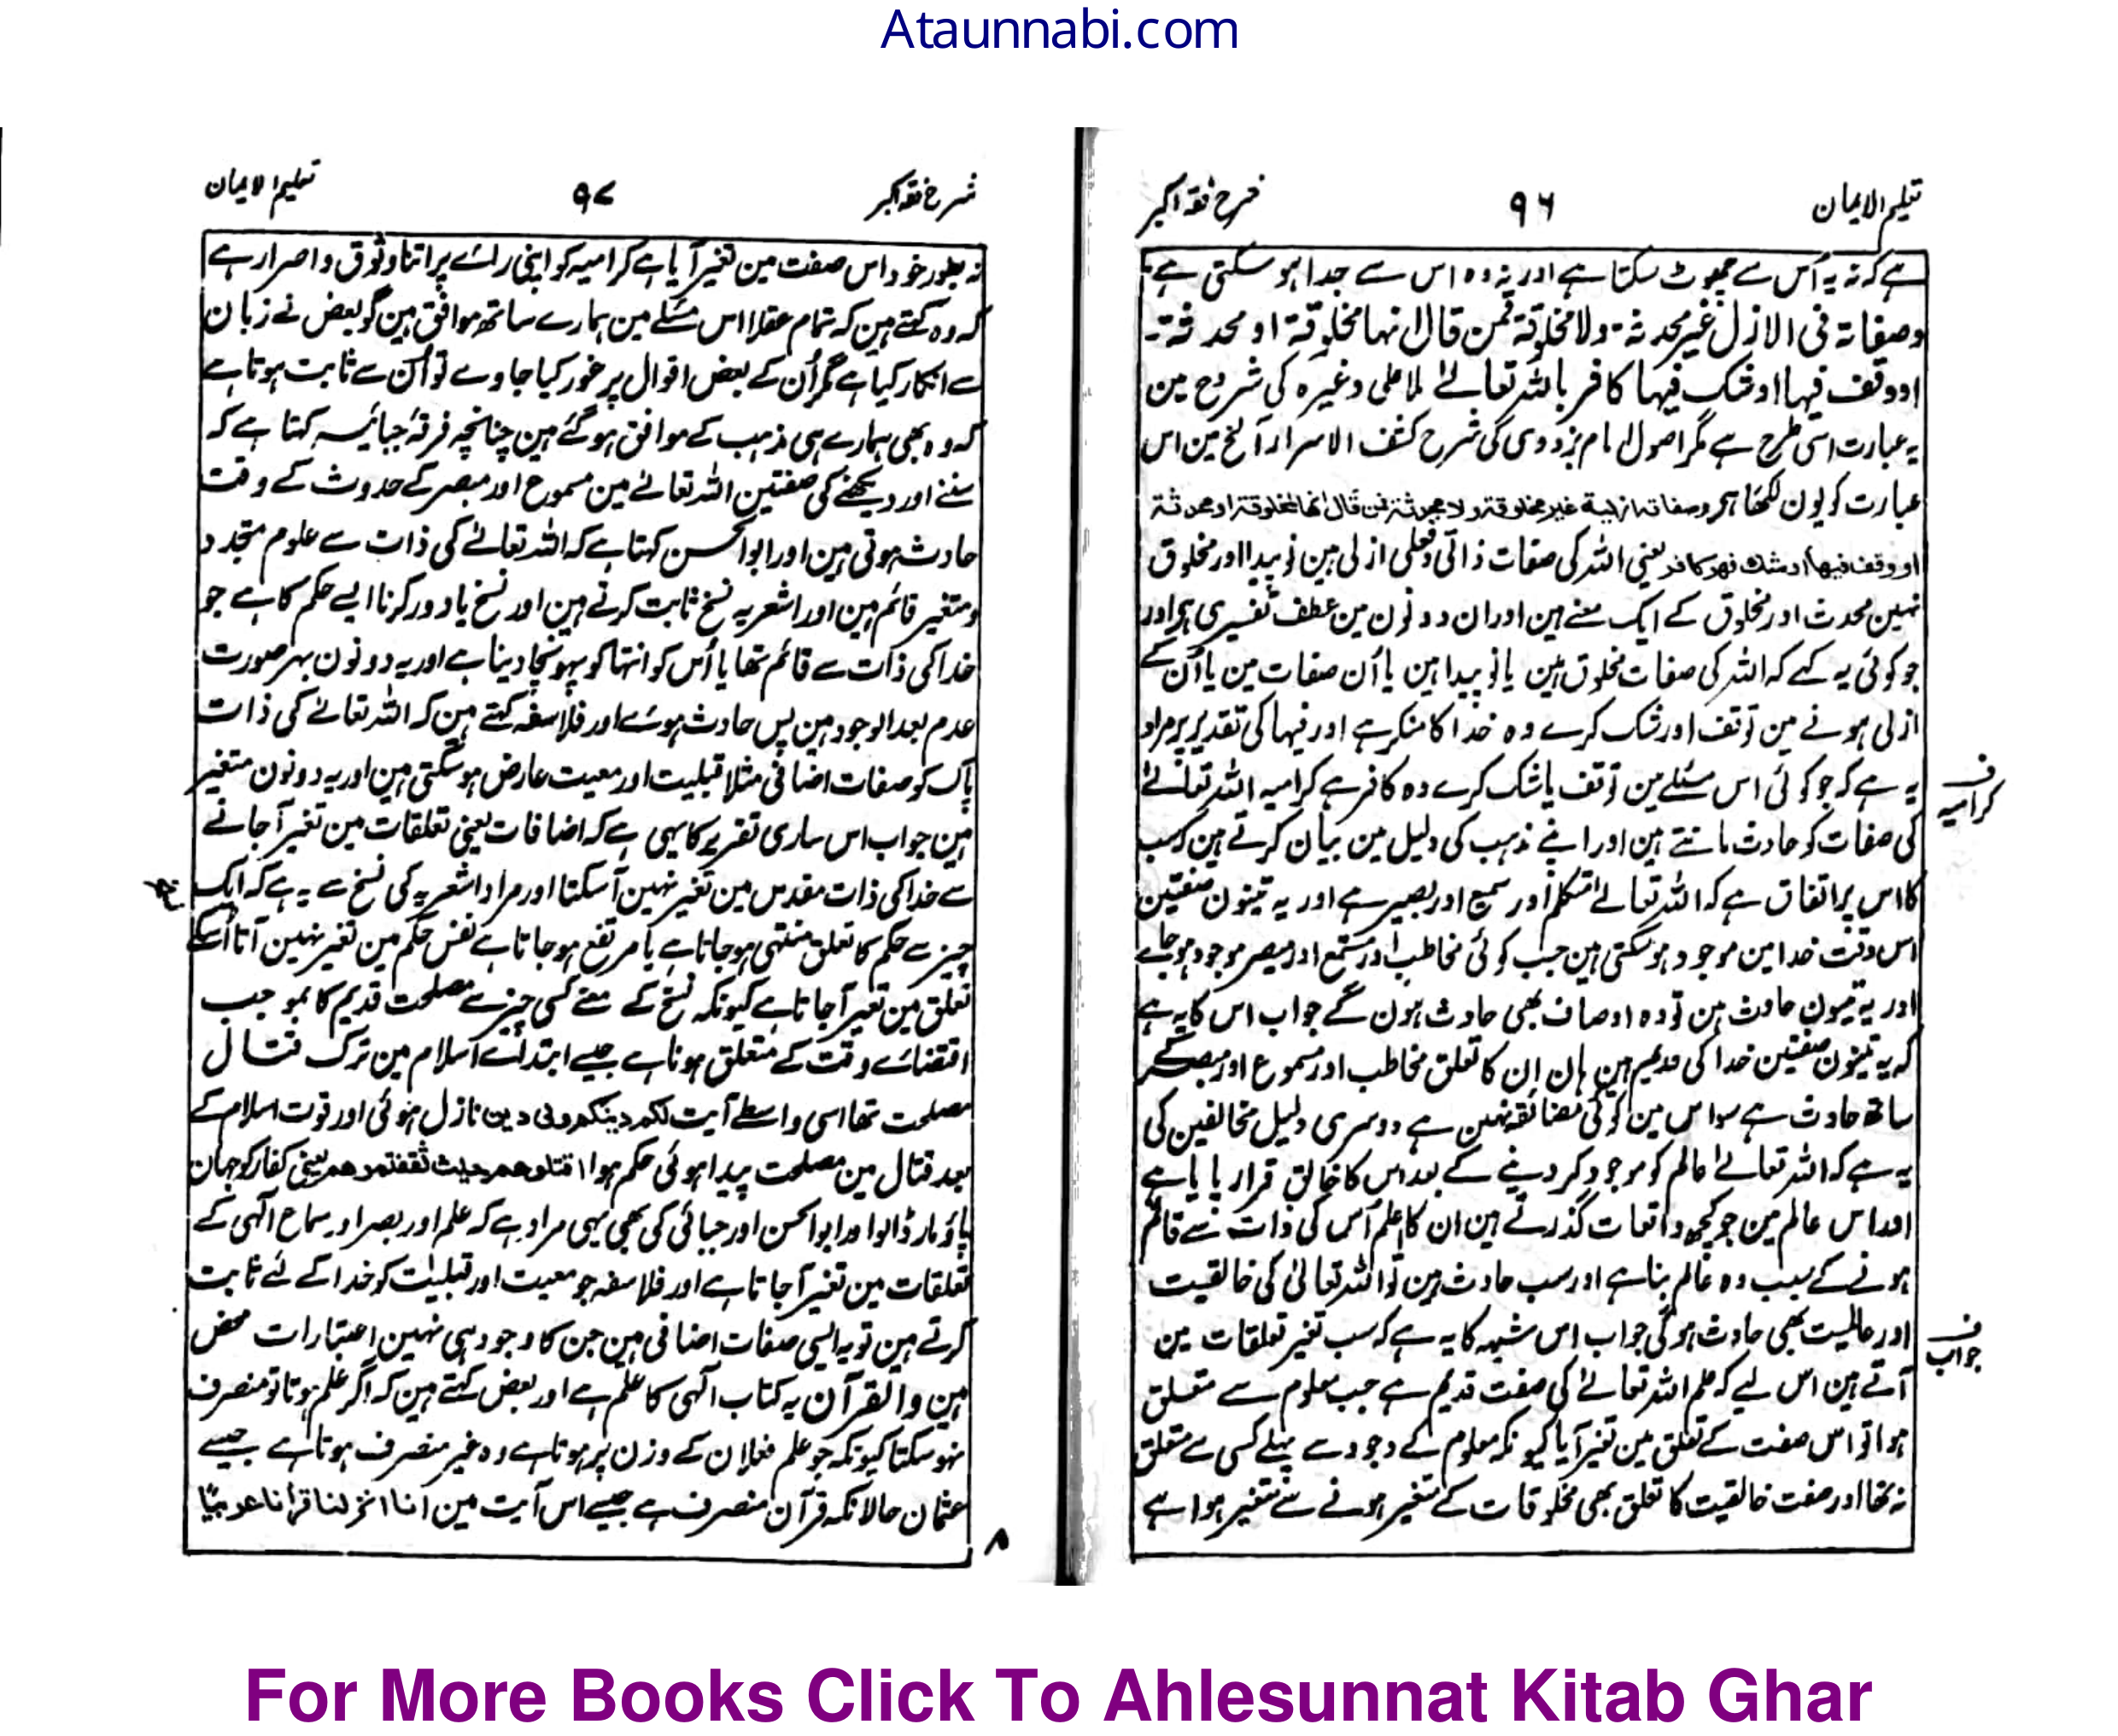 Ataunnabi.com
تعلیم الایمان
۹۶
شرح فقہ اکبر
ہے کہ نہ یہ اُس سے چھوٹ سکتا ہے اور نہ وہ اس سے جدا ہو سکتی ہے۔
وصفاتہ فی الازل غیر محدثۃ ولا مخلوقۃ فمن قال انہا مخلوقۃ او محدثۃ
اووقف فیہا اوشک فیہا کافر باللہ تعالےٰ ملا علی وغیرہ کی شروح مین
یہ عبارت اسی طرح ہے مگر اصول امام بزدوی کی شرح کشف الاسرار آلخ مین اس
عبارت کو یون لکھا ہے وصفاتہ ازلیۃ غیر مخلوقۃ ولا محدثۃ فمن قال انھا مخلوقۃ او محدثۃ
او وقف فیھا اوشک فھو کافر یعنی اللہ کی صفات ذاتی وفعلی ازلی ہین نوپیدا اور مخلوق
نہین محدث اور مخلوق کے ایک معنے ہین اور ان دونون مین عطف تفسیری ہے اور
جو کوئی یہ کہے کہ اللہ کی صفات مخلوق ہین یا نوپیدا ہین یا اُن صفات مین یا اُن کے
ازلی ہونے مین توقف اور شک کرے وہ خدا کا منکر ہے اور فیہا کی تقدیر پر مراد
یہ ہے کہ جو کوئی اس مسئلے مین توقف یا شک کرے وہ کافر ہے کرامیہ اللہ تعالےٰ
ف کرامیہ
کی صفات کو حادث مانتے ہین اور اپنے مذہب کی دلیل مین بیان کرتے ہین کہ سب
کا اس پر اتفاق ہے کہ اللہ تعالےٰ متکلم اور سمیع اور بصیر ہے اور یہ تینون صفتین
اس وقت خدا مین موجود ہو سکتی ہین جب کوئی مخاطب اور مستمع اور مبصر موجود ہو جاے
اور یہ تینون حادث ہین تو وہ اوصاف بھی حادث ہون گے جواب اس کا یہ ہے
کہ یہ تینون صفتین خدا کی قدیم ہین ہان ان کا تعلق مخاطب اور مسموع اور مبصر کے
ساتھ حادث ہے سو اس مین کوئی مضائقہ نہین ہے دوسری دلیل مخالفین کی
یہ ہے کہ اللہ تعالےٰ عالم کو موجود کر دینے کے بعد اس کا خالق قرار پایا ہے
اور اس عالم مین جو کچھ واقعات گذرتے ہین ان کا علم اُس کی ذات سے قائم
ہونے کے سبب وہ عالم بنا ہے اور سب حادث ہین تو اللہ تعالیٰ کی خالقیت
اور عالمیت بھی حادث ہوگی جواب اس شبہہ کا یہ ہے کہ سب تغیر تعلقات مین
ف جواب
آتے ہین اس لیے کہ علم اللہ تعالےٰ کی صفت قدیم ہے جب معلوم سے متعلق
ہوا تو اس صفت کے تعلق مین تغیر آیا کیونکہ معلوم کے وجود سے پہلے کسی سے متعلق
نہ تھا اور صفت خالقیت کا تعلق بھی مخلوقات کے متغیر ہونے سے متغیر ہوا ہے
شرح فقہ اکبر
۹۷
تعلیم الایمان
نہ بطور خود اس صفت مین تغیر آیا ہے کرامیہ کو اپنی راے پر اتنا وثوق و اصرار ہے
کہ وہ کہتے ہین کہ تمام عقلا اس مسئلے مین ہمارے ساتھ موافق ہین گو بعض نے زبان
سے انکار کیا ہے مگر اُن کے بعض اقوال پر غور کیا جاوے تو اُن سے ثابت ہوتا ہے
کہ وہ بھی ہمارے ہی مذہب کے موافق ہو گئے ہین چنانچہ فرقۂ جبائیہ کہتا ہے کہ
سننے اور دیکھنے کی صفتین اللہ تعالےٰ مین مسموع اور مبصر کے حدوث کے وقت
حادث ہوتی ہین اور ابوالحسن کہتا ہے کہ اللہ تعالےٰ کی ذات سے علوم متجدد
ومتغیر قائم ہین اور اشعریہ نسخ ثابت کرتے ہین اور نسخ یا دور کرنا ایسے حکم کا ہے جو
خدا کی ذات سے قائم تھا یا اُس کو انتہا کو پہونچا دینا ہے اور یہ دونون بہر صورت
عدم بعد الوجود ہین پس حادث ہوے اور فلاسفہ کہتے ہین کہ اللہ تعالےٰ کی ذات
پاک کو صفات اضافی مثلا قبلیت اور معیت عارض ہو سکتی ہین اور یہ دونون متغیر
ہین جواب اس ساری تقریر کا یہی ہے کہ اضافات یعنی تعلقات مین تغیر آ جانے
سے خدا کی ذات مقدس مین تغیر نہین آ سکتا اور مراد اشعریہ کی نسخ سے یہ ہے کہ ایک
چیز سے حکم کا تعلق منتہی ہو جاتا ہے یا مرتفع ہو جاتا ہے نفس حکم مین تغیر نہین آتا اُسکے
تعلق مین تغیر آ جاتا ہے کیونکہ نسخ کے معنے کسی چیز سے مصلحت قدیم کا بموجب
اقتضاے وقت کے متعلق ہونا ہے جیسے ابتداے اسلام مین ترک قتال
مصلحت تھا اسی واسطے آیت لکم دینکم ولی دین نازل ہوئی اور قوت اسلام کے
بعد قتال مین مصلحت پیدا ہوئی حکم ہوا اقتلوھم حیث ثقفتموھم یعنی کفار کو جہان
پاؤ مار ڈالو اور ابوالحسن اور جبائی کی بھی یہی مراد ہے کہ علم اور بصر اور سماع الٰہی کے
تعلقات مین تغیر آ جاتا ہے اور فلاسفہ جو معیت اور قبلیت کو خدا کے لئے ثابت
کرتے ہین تو یہ ایسی صفات اضافی ہین جن کا وجود ہی نہین اعتبارات محض
ہین والقرآن یہ کتاب الٰہی کا علم ہے اور بعض کہتے ہین کہ اگر علم ہوتا تو منصرف
نہو سکتا کیونکہ جو علم فعلان کے وزن پر ہوتا ہے وہ غیر منصرف ہوتا ہے جیسے
عثمان حالانکہ قرآن منصرف ہے جیسے اس آیت مین انا انزلنا قرآنا عربیًا
۸
For More Books Click To Ahlesunnat Kitab Ghar